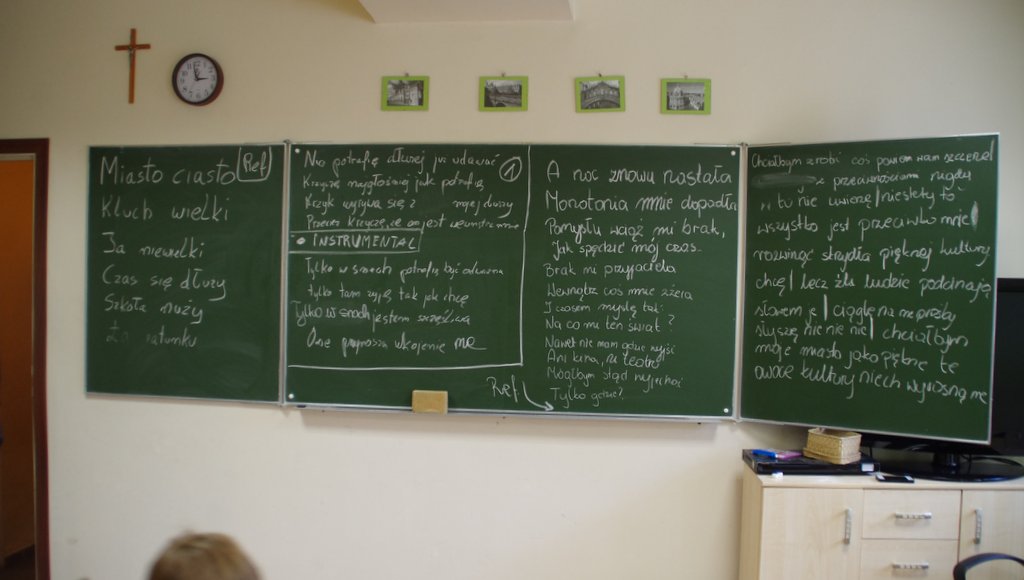 Miasto ciasto
Ref
Kluch wielki
Ja niewielki
Czas się dłuży
Szkoła nuży
ratunku
Nie potrafię dłużej już udawać
1
Krzyczę najgłośniej jak potrafię
Krzyk wyrywa się z mojej duszy
Przecież krzyczę, że on jest wewnątrz mnie
• INSTRUMENTAL
Tylko w snach potrafię być odważna
tylko tam żyję tak jak chcę
Tylko w snach jestem szczęśliwa
One przynoszą ukojenie me
Ref
A noc znowu nastała
Monotonia mnie dopadła
Pomysłu wciąż mi brak,
Jak spędzić mój czas.
Brak mi przyjaciela
Wewnątrz coś mnie zżera
I czasem myślę tak:
Na co mi ten świat?
Nawet nie mam gdzie wyjść
Ani kina, ni teatru
Mógłbym stąd wyjechać
Tylko gdzie?
Chciałbym zrobić coś powiem wam szczerze/
z przeciwnościami nigdy
tu nie uwierzę/niestety to
wszystko jest przeciwko mnie/
rozwinąć skrzydła pięknej kultury
chcę/lecz źli ludzie podcinają
słowem je/ciągle na me prośby
słyszę nie nie nie/chciałbym
moje miasto jako piękne te
owoce kultury niech wyrosną me